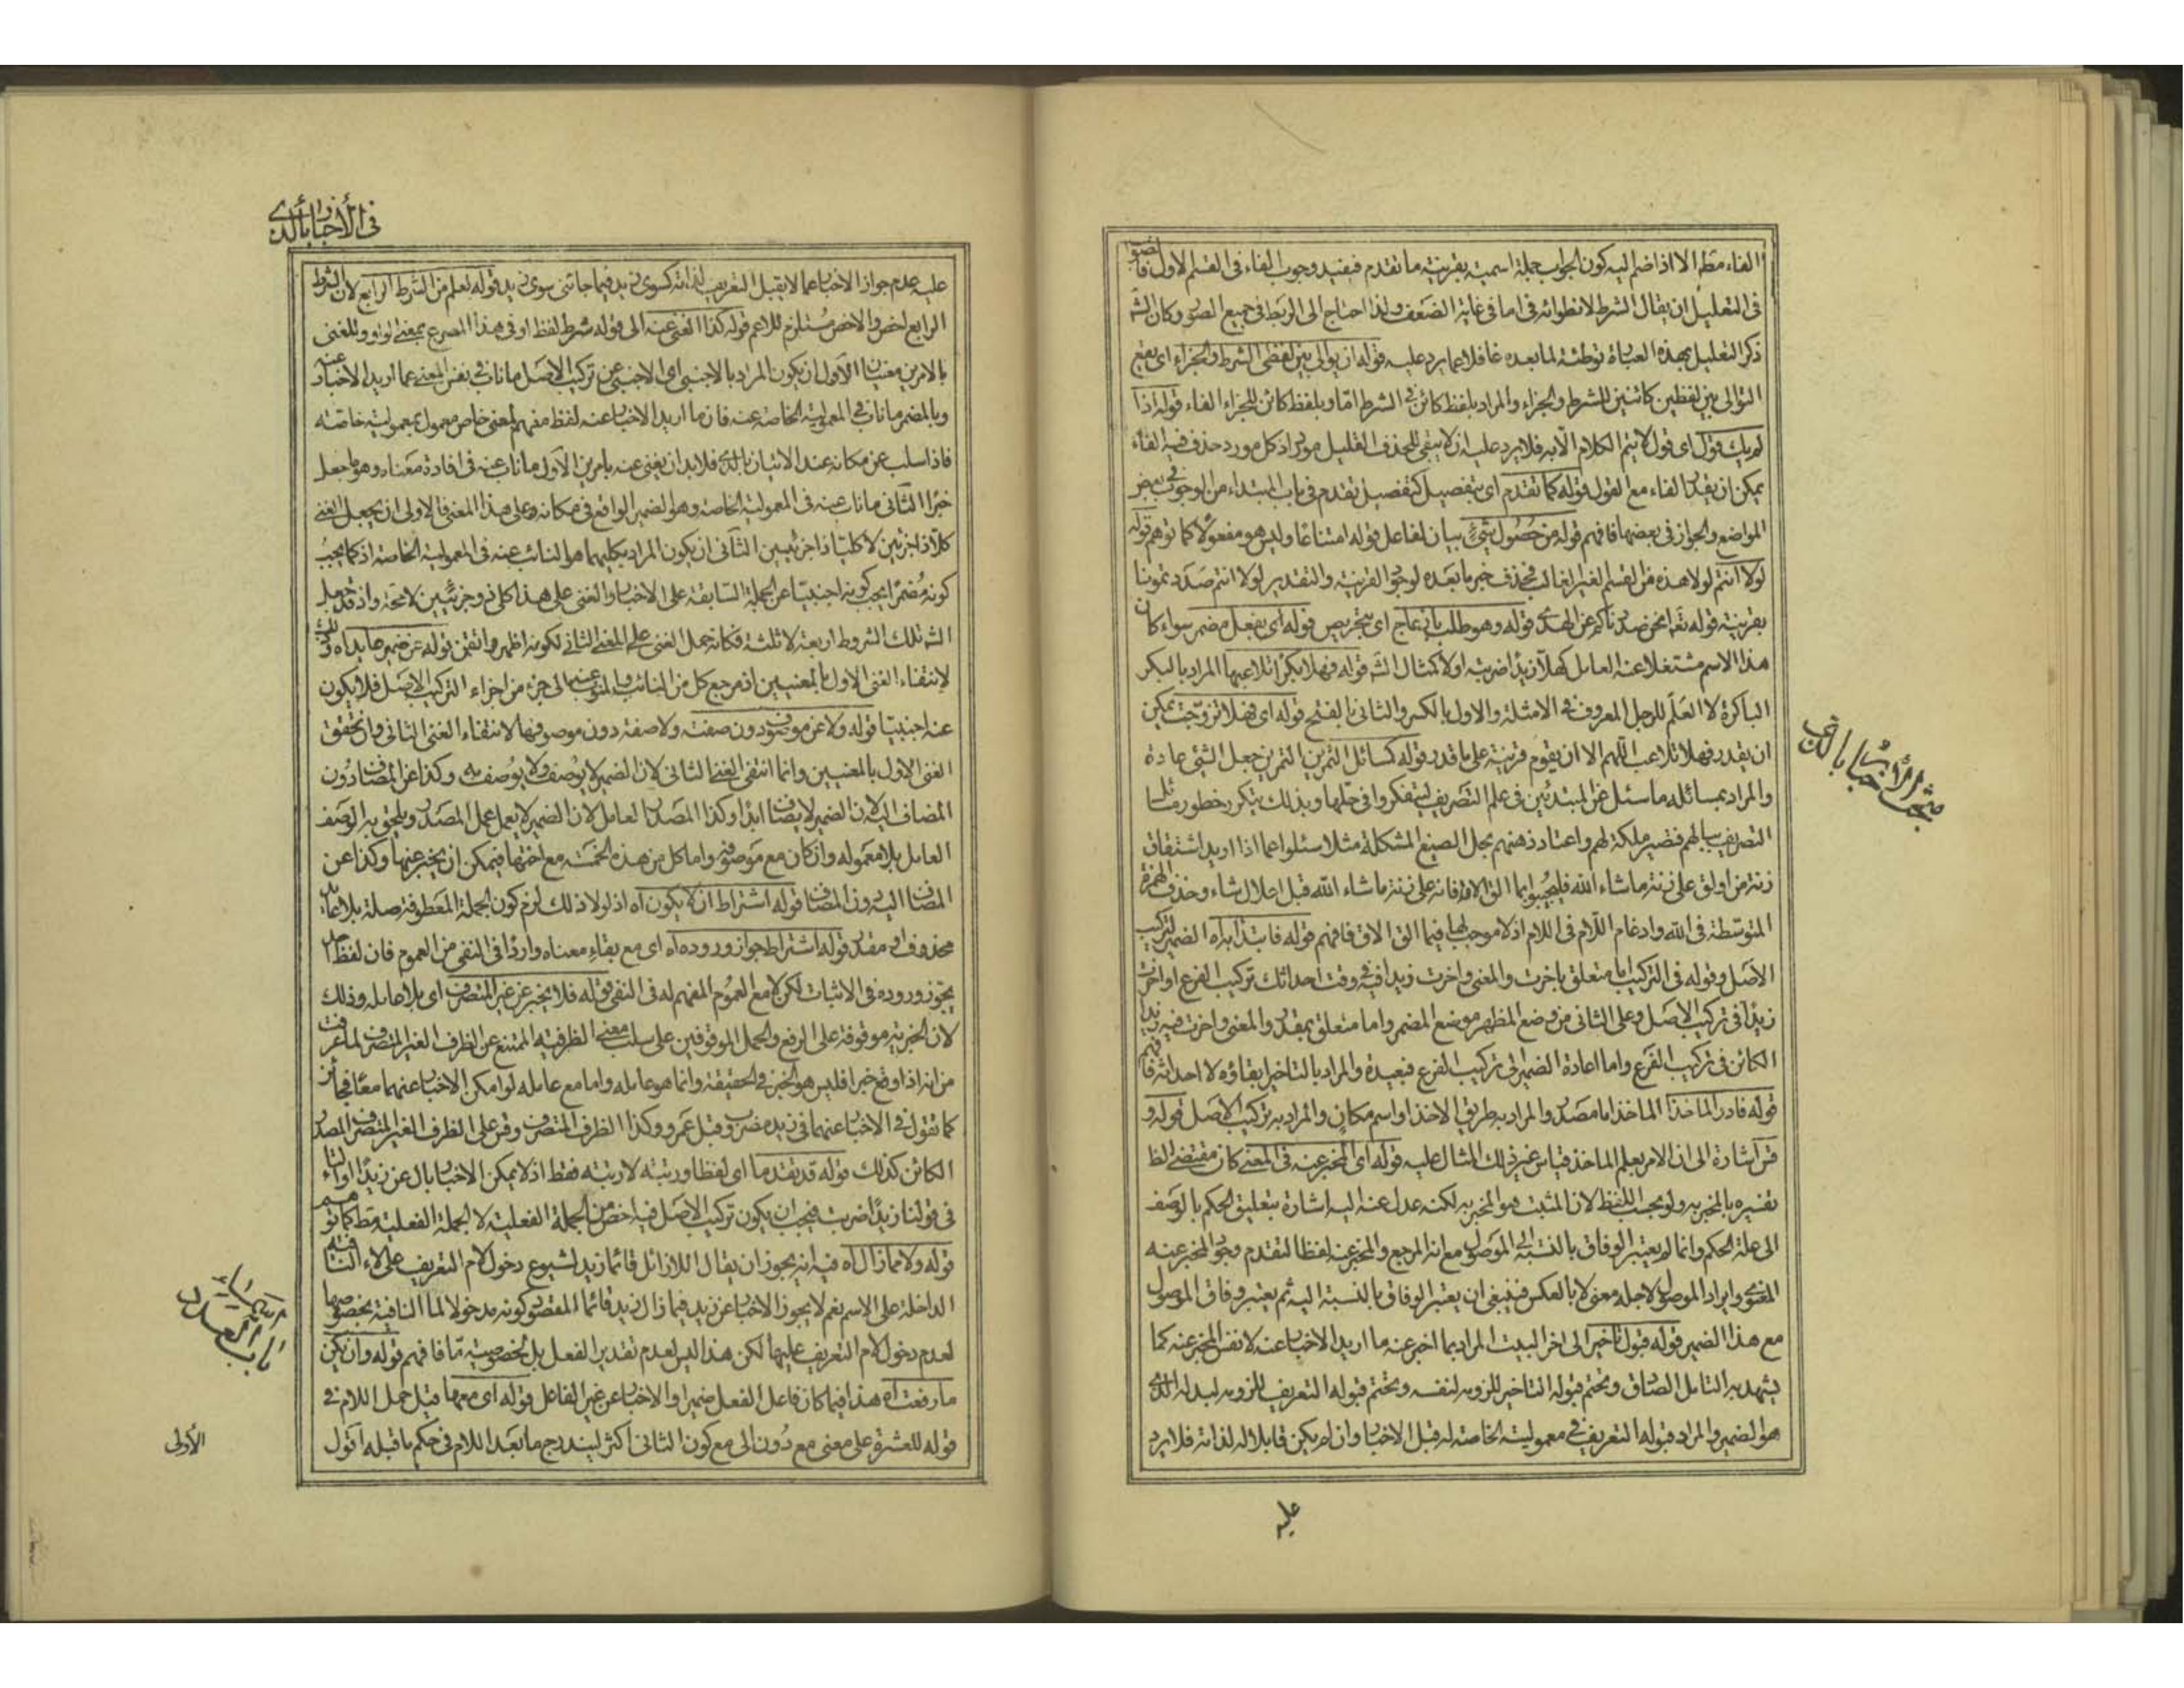 الفاء مط الا اذا ضم اليه كون الجواب جملة اسمية بقرينة ما تقدم فيفيد وجوب الفاء فى القسم الاول
فى التعليل ان يقال الشرط لانطوائه فى اما فى غاية الضعف ولذا احتاج الى الربط فى جميع الصور وكان الشه
ذكر التعليل بهذه العبارة توطئة لما بعده غافلا عما يرد عليه قوله ان يوالى بين لفظى الشرط والجزاء اى يقع
التوالى بين لفظين كائنين للشرط والجزاء والمراد بلفظ كائن فى الشرط اما وبلفظ كائن للجزاء الفاء قوله اذا
لم يك قول اى قول لا يتم الكلام الا به فلا يرد عليه ان لا يبقى للحذف القليل مورد اذ كل مورد حذف فيه الفاء
يمكن ان يقدر الفاء مع القول قوله كما تقدم اى بتفصيل كتفصيل تقدم فى باب المبتداء من الوجوب فى بعض
المواضع والجواز فى بعضها فافهم قوله من حصول شئ بيان لفاعل قوله امتناعا وليس هو مفعولا كما توهم قوله
لولا انتم لولا هذه من القسم الغير الغالب فحذف خبر ما بعده لوجود القرينة والتقدير لولا انتم صددتمونا
بقرينة قوله تعا انحن صددناكم عن الهدى قوله وهو طلب بازعاج اى بتحريص قوله اى بفعل مضمر سواء كان
هذا الاسم مشتغلا عنه العامل كهلا زيدا ضربته اولا كمثال الشه قوله فهلا بكرا تلاعبها المراد بالبكر
الباكرة لا العلم للرجل المعروف فى الامثلة والاول بالكسر والثانى بالفتح قوله اى فهلا تزوجت يمكن
ان يقدر فهلا تلاعب اللهم الا ان يقوم قرينة على ما قدر قوله كمسائل التمرين التمرين جعل الشئ عادة
والمراد بمسائله ما سئل عن المبتدئين فى علم التصريف ليتفكروا فى حلها وبذلك يتكرر خطور
التصريف ببالهم فتصير ملكة لهم واعتاد ذهنهم بحل الصيغ المشكلة مثلا سئلوا عما اذا اريد اشتقاق
زنة من اولق على زنة ما شاء الله فليجيبوا بما الق الاق فانه على زنة ما شاء الله قبل اعلال شاء وحذف الهمزة
المتوسطة فى الله وادغام اللام فى اللام اذ لا موجب لها فيما الق الاق فافهم قوله فابتدا به اه الضمير لتركيب
الاصل وقوله فى التركيب اما متعلق باخرت والمعنى واخرت زيدا فيه وقت احداثك تركيب الفرع او اخرت
زيدا فى تركيب الاصل وعلى الثانى من وضع المظهر موضع المضمر واما متعلق بمقدر والمعنى واخرت فيه زيدا
الكائن فى تركيب الفرع واما اعادة الضمير الى تركيب الفرع فبعيدة والمراد بالتاخير ابقاؤه لا احداثه فافهم
قوله فادر الماخذا الماخذ اما مصدر والمراد به طريق الاخذ او اسم مكان والمراد به تركيب الاصل قوله و
قس اشارة الى ان الامر بعلم الماخذ قياس غير ذلك المثال عليه قوله اى المخبر عنه فى المعنى كان مقتضى الظ
تفسيره بالمخبر به ولو بحسب اللفظ لان المثبت هو المخبر به لكنه عدل عنه اليه اشارة بتعليق الحكم بالوصف
الى علة الحكم وانما لم يعتبر الوفاق بالنسبة الى الموصول مع انه المرجع والمخبر عنه لفظا لتقدم وجود المخبر عنه
المعنوى وايراد الموصول لاجله معنى لا بالعكس فينبغى ان يعتبر الوفاق بالنسبة اليه ثم يعتبر وفاق الموصول
مع هذا الضمير قوله قبول تاخير الى اخر البيت المراد بما اخبر عنه ما اريد الاخبار عنه لا نفس المخبر عنه كما
يشهد به التامل الصادق وتحتم قبوله التاخير للزومه لنفسه وتحتم قبوله التعريف للزومه لبدله الذى
هو الضمير والمراد قبوله التعريف فى معموليته الخاصة له قبل الاخبار وان لم يكن قابلا له لذاته فلا يرد
عليه
مبحث الأخبار بالذى
فى الأخبار بالذى
عليه عدم جواز الاخبار عما لا يقبل التعريف لذاته كسوى زيد فيما جائنى سوى زيد قوله لعلم من الشرط الرابع لان الشرط
الرابع اخص والاخص مستلزم للاعم قوله كذا الغنى عنه الى قوله شرط لفظ او فى هذا المصرع بمعنى الواو وللغنى
بالامرين معنيان الاول ان يكون المراد بالاجنبى اى الاجنبى عن تركيب الاصل ما ناب فى نفس المعنى عما اريد الاخبار عنه
وبالمضمر ما ناب فى المعمولية الخاصة عنه فان ما اريد الاخبار عنه لفظ مفهم لمعنى خاص معمول بمعمولية خاصة
فاذا سلب عن مكانه عند الاتيان بالذى فلابد ان يغنى عنه بامرين الاول ما ناب عنه فى افادة معناه وهو ما جعل
خبرا الثانى ما ناب عنه فى المعمولية الخاصة وهو الضمير الواقع فى مكانه وعلى هذا المعنى فالاولى ان يجعل الغنى
كلا ذا جزئين لا كليا ذا جزئيين الثانى ان يكون المراد بكليهما هو النائب عنه فى المعمولية الخاصة اذ كما يجب
كونه مضمرا يجب كونه اجنبيا عن الجملة السابقة على الاخبار والغنى على هذا كلى ذو جزئيين لا محة واذ قد جعل
الشه تلك الشروط اربعة لا ثلثة فكانه حمل الغنى على المعنى الثانى لكونه اظهر واتقن قوله عن ضمير عايد اه وذلك
لانتفاء الغنى الاول بالمعنيين اذ مرجع كل من النائب والمنوب عنهما الى جزء من اجزاء التركيب الاصل فلا يكون
عنه اجنبيا قوله ولا عن موصوف دون صفته ولا صفة دون موصوفها لانتفاء الغنى الثانى وان تحقق
الغنى الاول بالمعنيين وانما انتفى الغنى الثانى لان الضمير لا يوصف ولا يوصف به وكذا عن المضاف دون
المضاف اليه لان الضمير لا يضاف ابدا وكذا المصدر العامل لان الضمير لا يعمل عمل المصدر ويلحق به الوصف
العامل بلا معموله وان كان مع موصوفه واما كل من هذه الخمسة مع اختها فيمكن ان يخبر عنها وكذا عن
المضاف اليه دون المضاف قوله اشتراط ان لا يكون اه اذ لولا ذلك لزم كون الجملة المعطوفة صلة بلا عايد
محذوف او مقدر قوله اشتراط جواز وروده اه اى مع بقاء معناه واردا فى النفى من العموم فان لفظ احد
يجوز وروده فى الاثبات لكن لا مع العموم المفهم له فى النفى قوله فلا يخبر عن غير المتصرف اى بلا عامله وذلك
لان الخبرية موقوفة على الرفع والحمل الموقوفين على سلب معنى الظرفية الممتنع عن الظرف الغير المتصرف لما عرفت
من انه اذا وقع خبرا فليس هو الخبر فى الحقيقة وانما هو عامله واما مع عامله لو امكن الاخبار عنهما معا فجائز
كما تقول فى الاخبار عنهما فى زيد مضرب وقبل عمرو وكذا الظرف المتصرف وقس على الظرف الغير المتصرف المصدر
الكائن كذلك قوله قد تقدما اى لفظا ورتبة لا رتبة فقط اذ لا يمكن الاخبار بال عن زيدا او التاء
فى قولنا زيدا ضربت فيجب ان يكون تركيب الاصل فيه اخص من الجملة الفعلية لا الجملة الفعلية مط كما توهم
قوله ولا مما زال اه فيه انه يجوز ان يقال اللازائل قائما زيد لشيوع دخول لام التعريف على لاء النافية
الداخلة على الاسم نعم لا يجوز الاخبار عن زيد فيما زال زيد قائما المقصود كونه مدخولا لما النافية بخصوصها
لعدم دخول لام التعريف عليها لكن هذا ليس لعدم تقدير الفعل بل لخصوصية ما فافهم قوله وان يكن
ما رفعت اه هذا فيما كان فاعل الفعل ضميرا والاخبار عن غير الفاعل قوله اى معها قبل حمل اللام فى
قوله للعشرة على معنى مع دون الى مع كون الثانى اكثر ليندرج ما بعد اللام فى حكم ما قبله اقول
باب العدد
الأولى